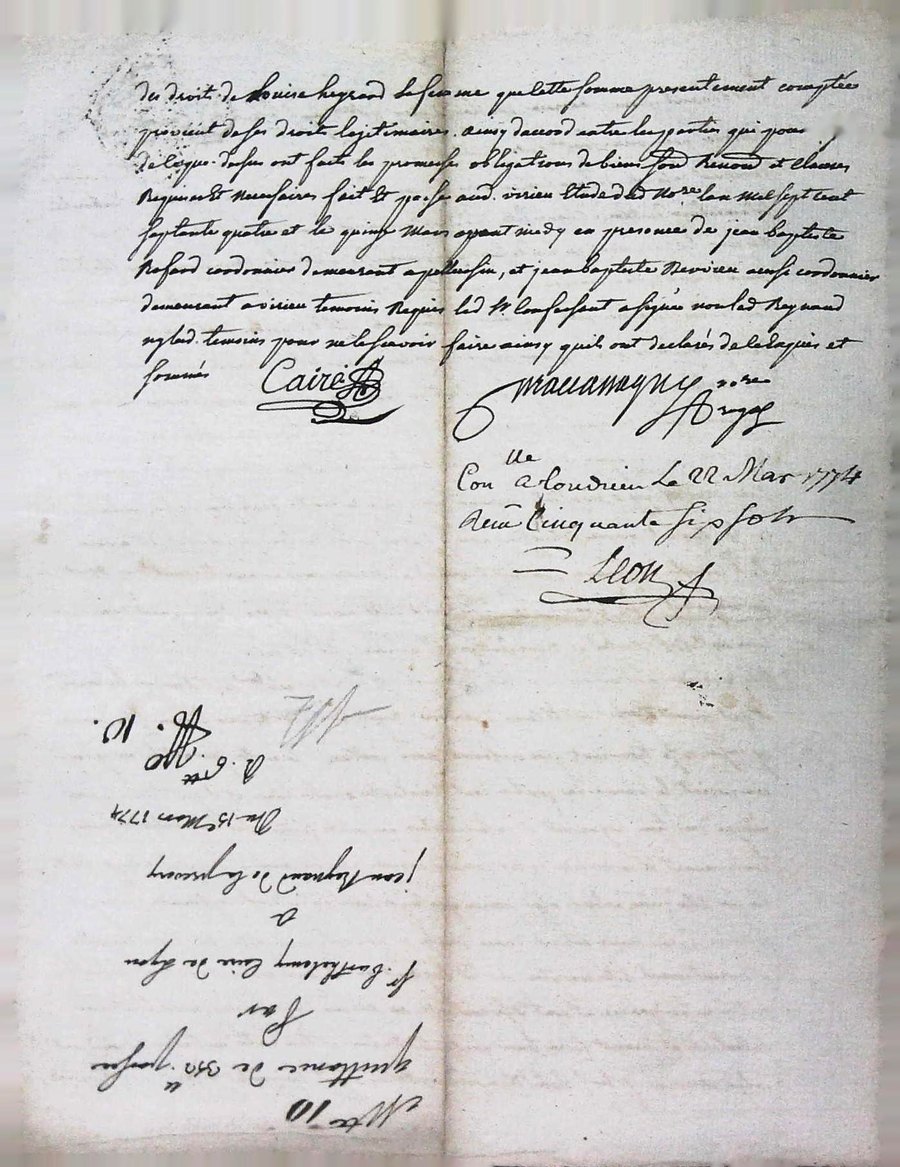 des droits de Louise Legrand sa femme que cette somme presentement comptée
provient de ses droits legitimaires. ainsy daccord entre les parties qui pour
de ce que dessus ont faits les promesses obligations de biens et clauses
Requises et necessaires fait et passé aud. virieu Etude de Nore lan Mil sept cent
septante quatre et le quinze Mars avant midy en presence de jean baptiste
cordonnier demeurant a pellussin, et jean baptiste aussi cordonnier
demeurant a virieu temoins Requis led Sr. Confessant a signé non led Reynaud
ny lesd. temoins pour ne le scavoir faire ainsy quils ont declarés de ce Enquis et
sommés
Cairé
nore
Con lle a Condrieu Le 22 Mars 1774
Recu Cinquante six sols
Leon
No 10
quittance de 350 ll
Par
Sr. Barthelemy Caire de Lyon
a
jean Reynaud de
Du 15e Mars 1774
10.